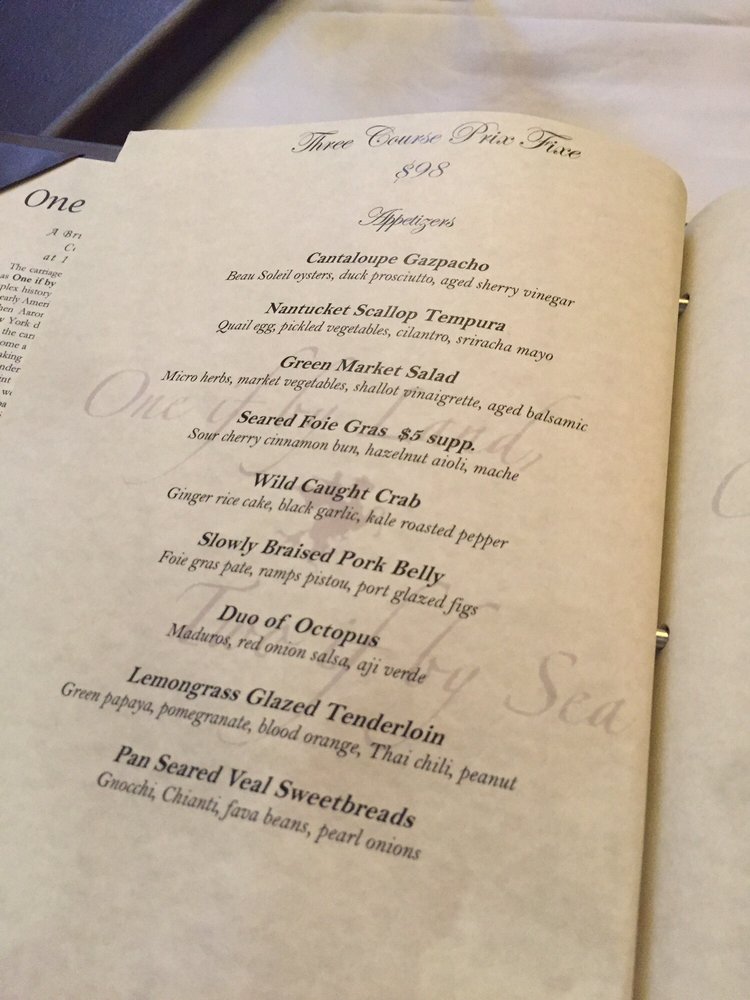 Three Course Prix Fixe
$98
Appetizers
Cantaloupe Gazpacho
Beau Soleil oysters, duck prosciutto, aged sherry vinegar
Nantucket Scallop Tempura
Quail egg, pickled vegetables, cilantro, sriracha mayo
Green Market Salad
Micro herbs, market vegetables, shallot vinaigrette, aged balsamic
Seared Foie Gras $5 supp.
Sour cherry cinnamon bun, hazelnut aioli, mache
Wild Caught Crab
Ginger rice cake, black garlic, kale roasted pepper
Slowly Braised Pork Belly
Foie gras pate, ramps pistou, port glazed figs
Duo of Octopus
Maduros, red onion salsa, aji verde
Lemongrass Glazed Tenderloin
Green papaya, pomegranate, blood orange, Thai chili, peanut
Pan Seared Veal Sweetbreads
Gnocchi, Chianti, fava beans, pearl onions
One if by Land,
Two if by Sea
One
A
at
The carriage
as One if by
plex history
early
York
the